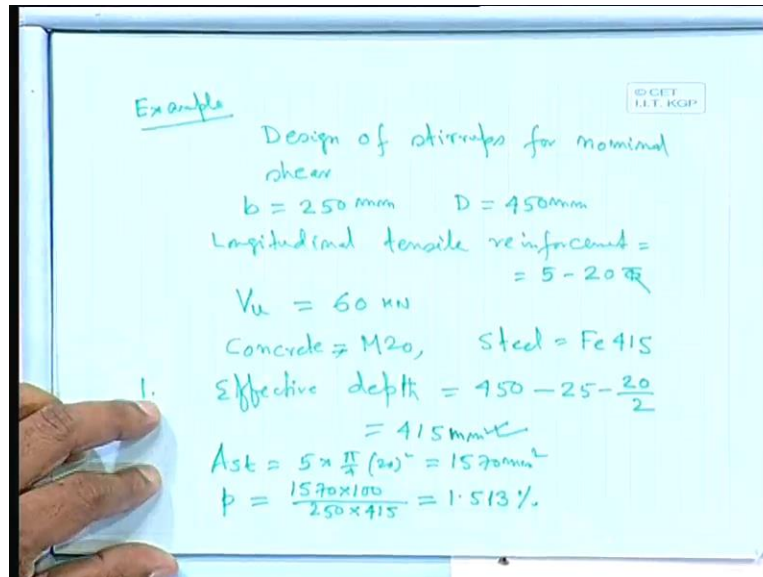 © CET
I.I.T. KGP
Example
Design of stirrups for nominal
shear
b = 250 mm D = 450mm
Longitudinal tensile reinforcement =
= 5 - 20
Vu = 60 KN
Concrete = M20, Steel = Fe 415
1. Effective depth = 450 - 25 - 20/2
= 415mm
Ast = 5 × π/4 (20)² = 1570mm²
p = 1570×100 / 250×415 = 1.513 %.